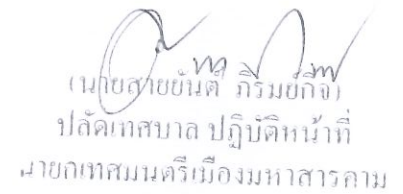 (นายสายยันต์ ภิรมย์กิจ)
ปลัดเทศบาล ปฏิบัติหน้าที่
นายกเทศมนตรีเมืองมหาสารคาม